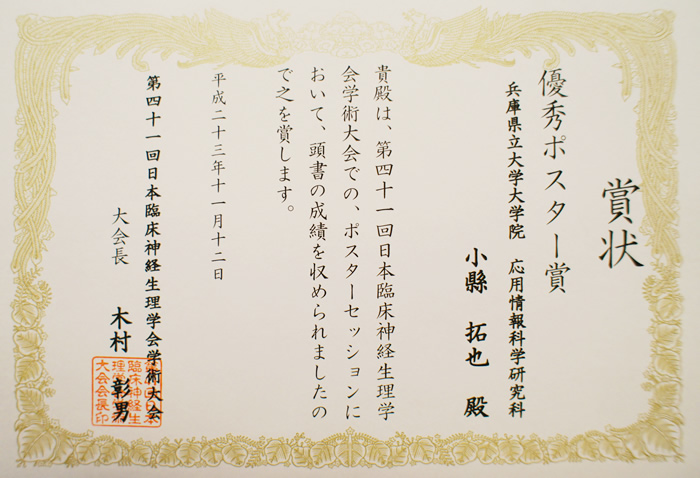 賞状
優秀ポスター賞
兵庫県立大学大学院 応用情報科学研究科
小縣 拓也 殿
貴殿は、第四十一回日本臨床神経生理学
会学術大会での、ポスターセッションに
おいて、頭書の成績を収められましたの
で之を賞します。
平成二十三年十一月十二日
第四十一回日本臨床神経生理学会学術大会
大会長 木村 彰男
臨床神経生
理学
大会会長印